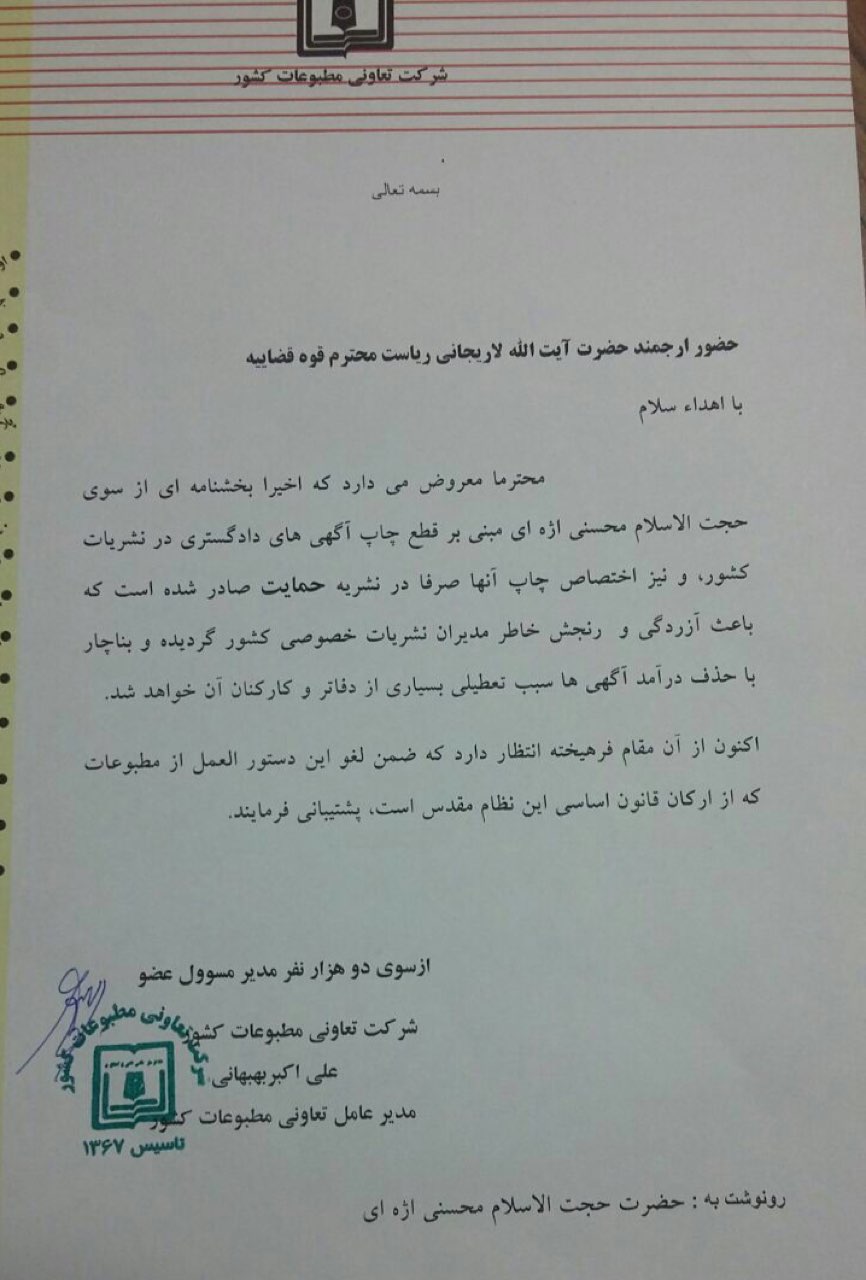 شرکت تعاونی مطبوعات کشور
بسمه تعالی
حضور ارجمند حضرت آیت الله لاریجانی ریاست محترم قوه قضاییه
با اهداء سلام
محترما معروض می دارد که اخیرا بخشنامه ای از سوی
حجت الاسلام محسنی اژه ای مبنی بر قطع چاپ آگهی های دادگستری در نشریات
کشور، و نیز اختصاص چاپ آنها صرفا در نشریه حمایت صادر شده است که
باعث آزردگی و رنجش خاطر مدیران نشریات خصوصی کشور گردیده و بناچار
با حذف درآمد آگهی ها سبب تعطیلی بسیاری از دفاتر و کارکنان آن خواهد شد.
اکنون از آن مقام فرهیخته انتظار دارد که ضمن لغو این دستور العمل از مطبوعات
که از ارکان قانون اساسی این نظام مقدس است، پشتیبانی فرمایند.
ازسوی دو هزار نفر مدیر مسوول عضو
شرکت تعاونی مطبوعات کشور
علی اکبربهبهانی
مدیر عامل تعاونی مطبوعات کشور
شرکت تعاونی مطبوعات کشور
تاسیس ۱۳۶۷
رونوشت به : حضرت حجت الاسلام محسنی اژه ای